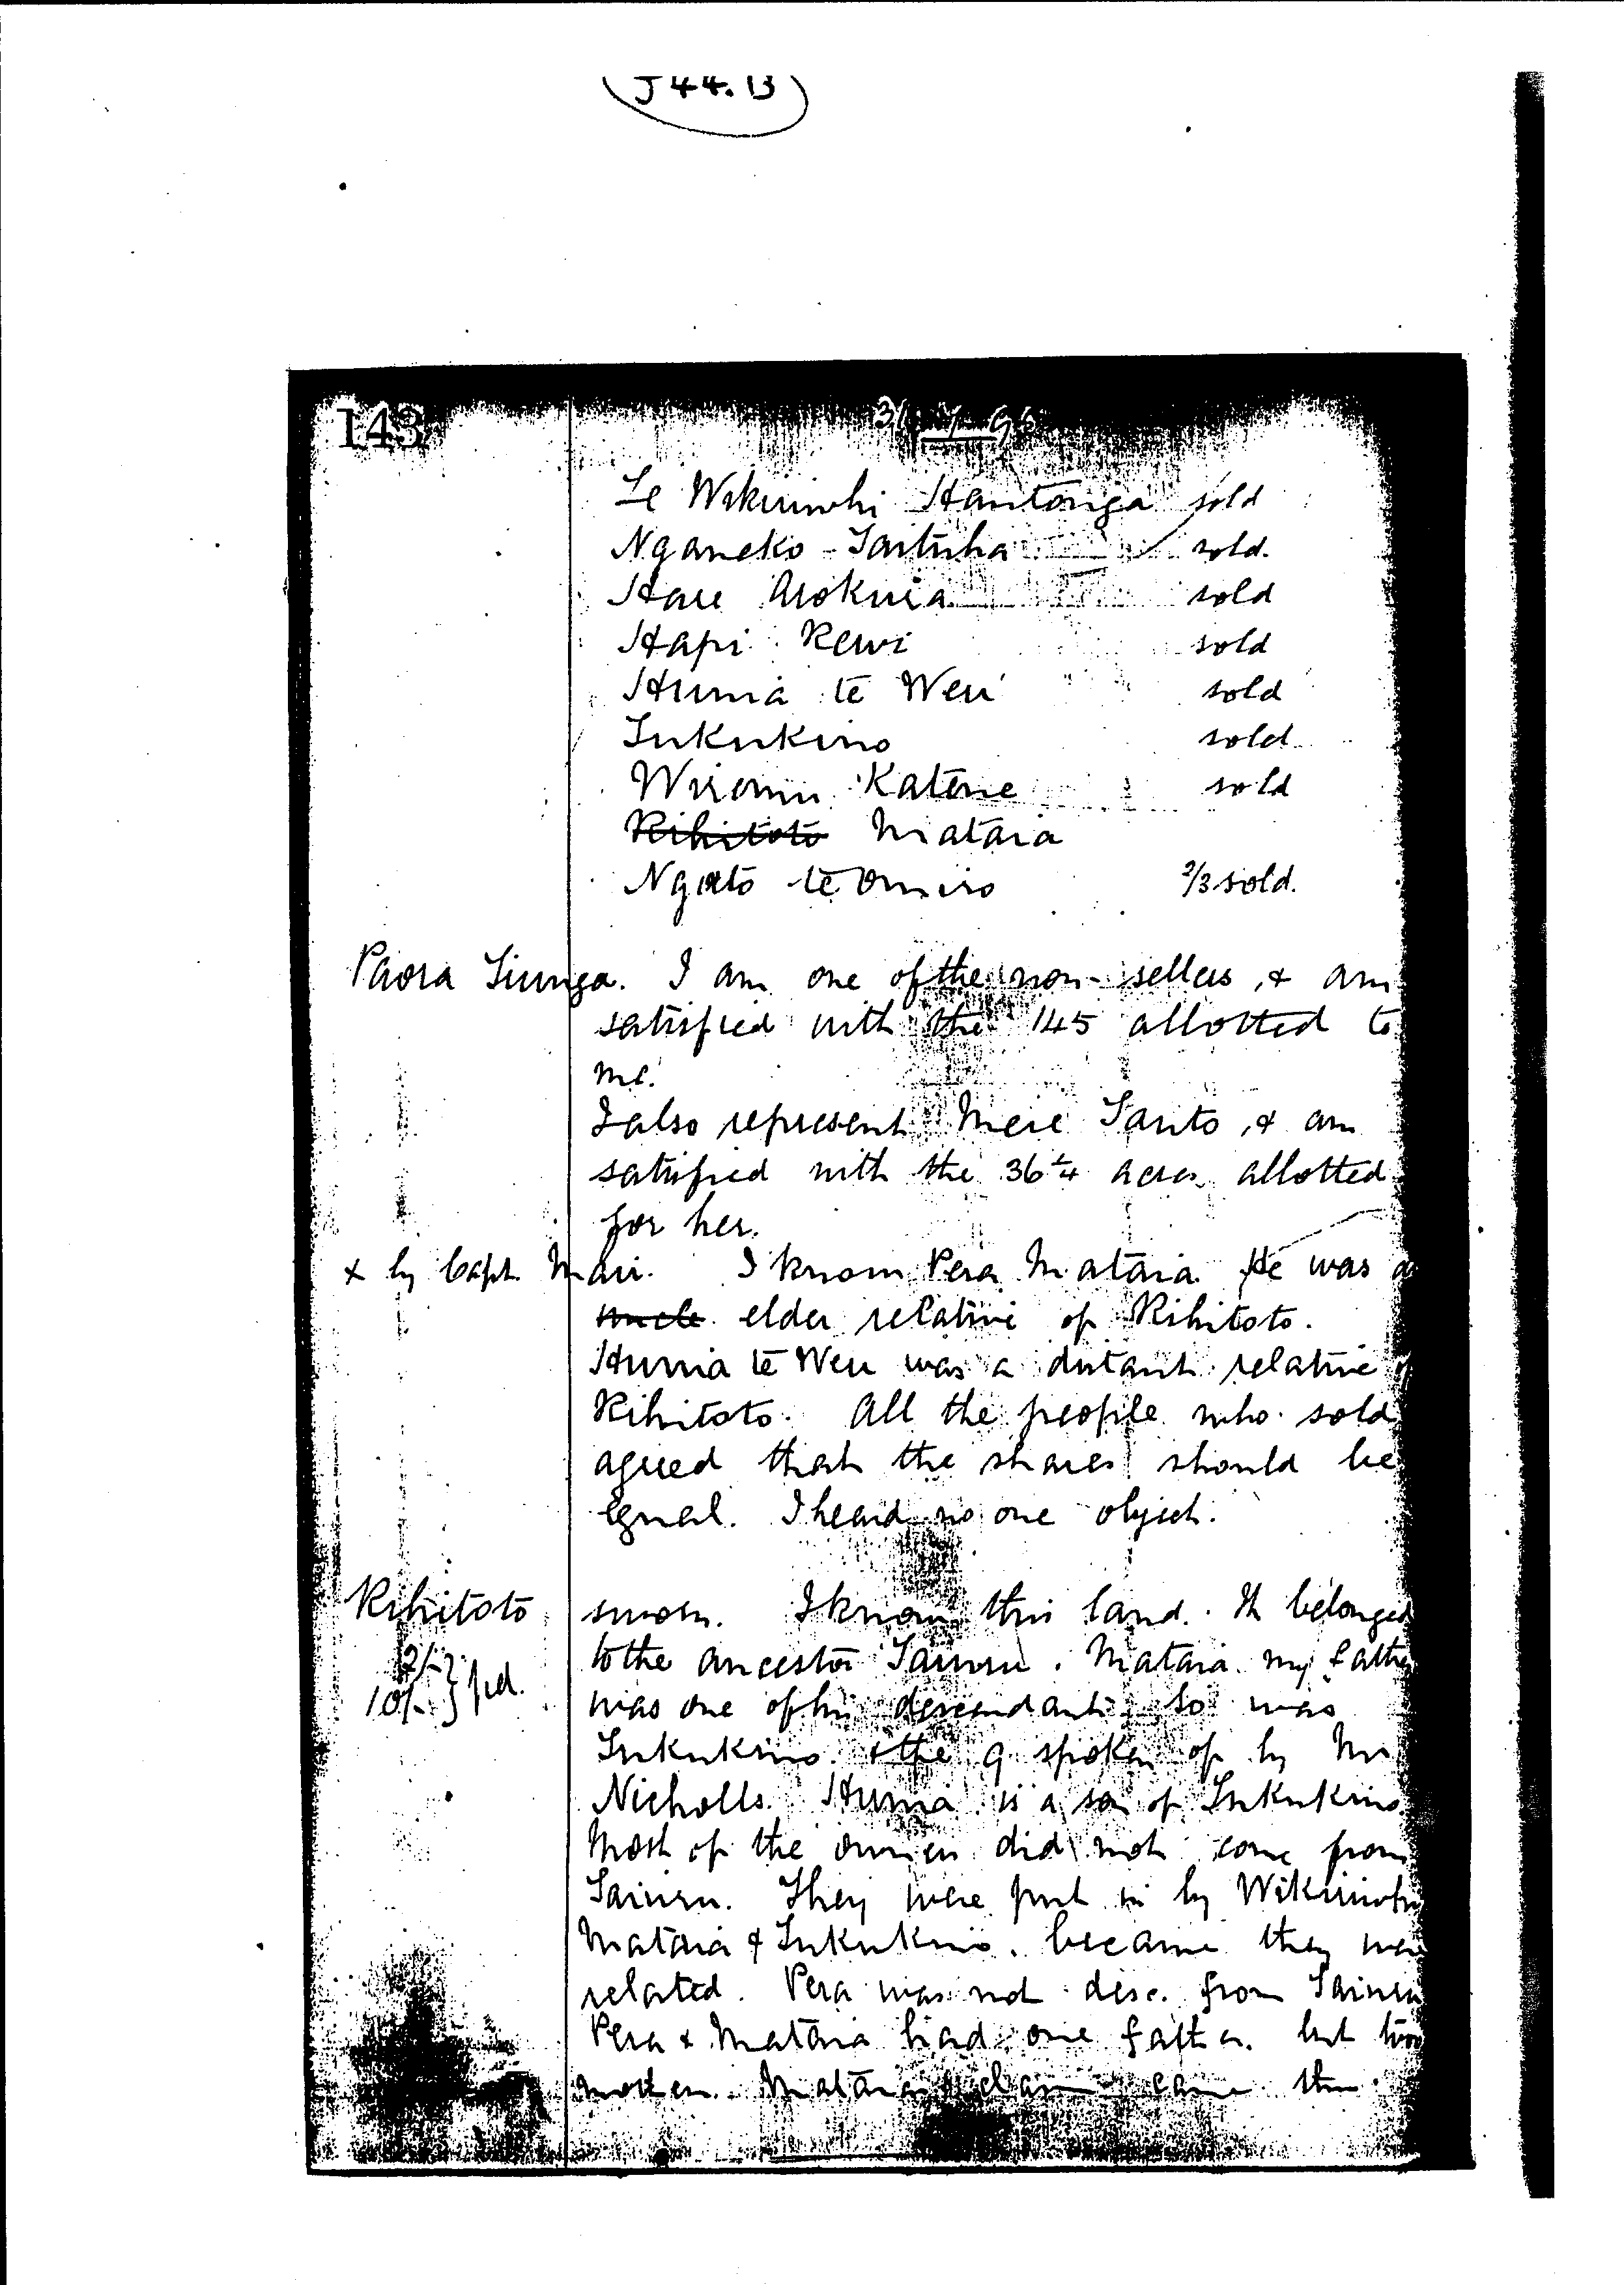 J 44. 13
143
Te Wikiriwhi Hautonga sold
Nganeko Taituha sold.
Hare Arokuia sold
Hapi Rewi sold
Hunia te Weu sold
Tukukino sold
Wiremu Katene sold
Rihitoto Mataia
Ngato te 2/3 sold.
Paora Tiunga. I am one of the non-sellers, & am
satisfied with the 145 allotted to
me.
I also represent Mere Taruto, & am
satisfied with the 36 1/4 acres allotted
for her.
x by Capt. Mair. I know Pera Mataia. He was a
uncle elder relative of Rihitoto.
Hunia te Weu was a distant relative of
Rihitoto. All the people who sold
agreed that the shares should be
equal. I heard no one object.
Rihitoto sworn. I know this land. It belonged
to the ancestor Tainuru. Mataia my father
2/-
10/- } pd.
was one of his descendants so was
Tukukino & the 9 spoken of by Mr
Nicholls. Hunia is a son of Tukukino.
Most of the owners did not come from
Tainuru. They were put in by Wikiriwhi
Mataia & Tukukino. because they were
related. Pera was not desc. from Tainuru
Pera & Mataia had one father. but two
mothers. Mataia's claim came thro.